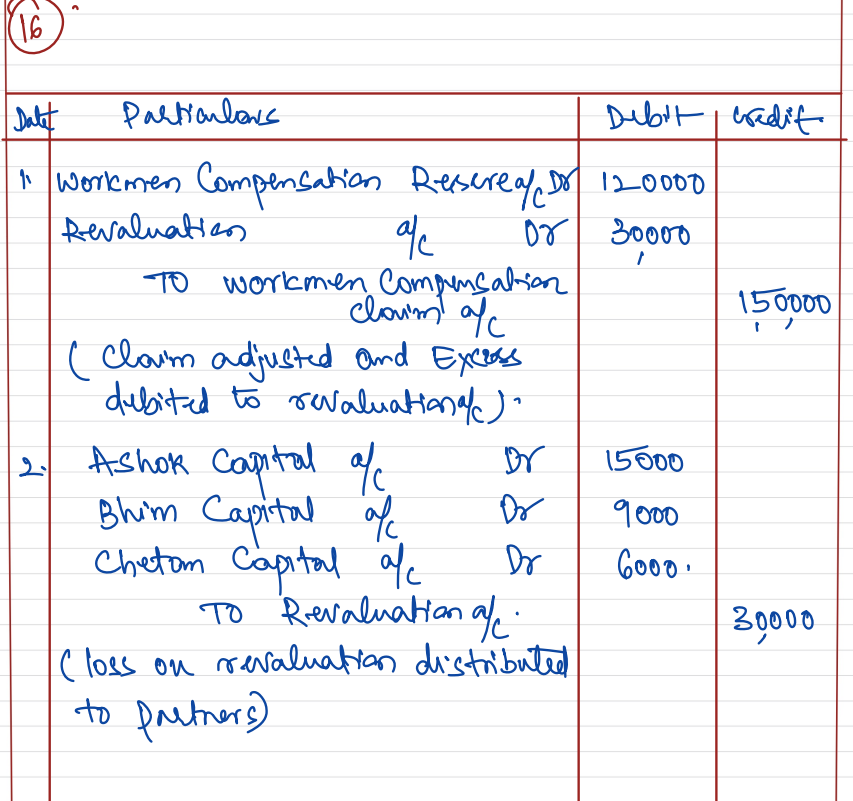 16
Date Particulars Debit Credit
1. Workmen Compensation Reserve a/c Dr 120000
Revaluation a/c Dr 30,000
To workmen Compensation
claim a/c 1,50,000
( Claim adjusted and Excess
debited to revaluation a/c).
2. Ashok Capital a/c Dr 15000
Bhim Capital a/c Dr 9000
Chetan Capital a/c Dr 6000.
To Revaluation a/c. 30,000
( loss on revaluation distributed
to partners)